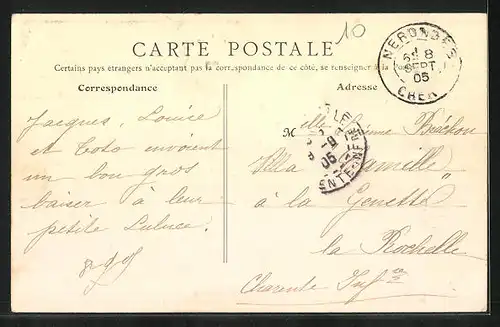 10
CARTE POSTALE
Certains pays étrangers n'acceptant pas la correspondance de ce côté, se renseigner à la
Correspondance
Adresse
NERONDES
8
SEPT
05
CHER
Jacques, Louise
et Toto envoient
un bon gros
baiser à leur
petite Luluce.
Melle
Villa Camille"
à la Genette
la Rochelle
Charente Infre